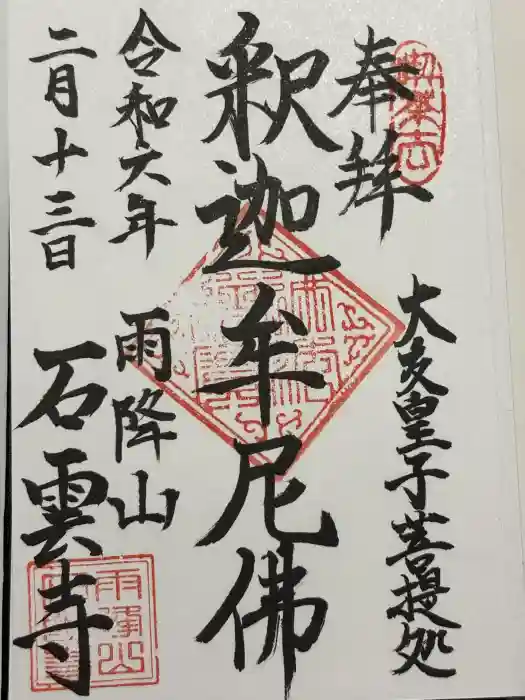 奉拝
大友皇子菩提処
釈迦牟尼佛
令和六年
二月十三日
雨降山
石雲寺